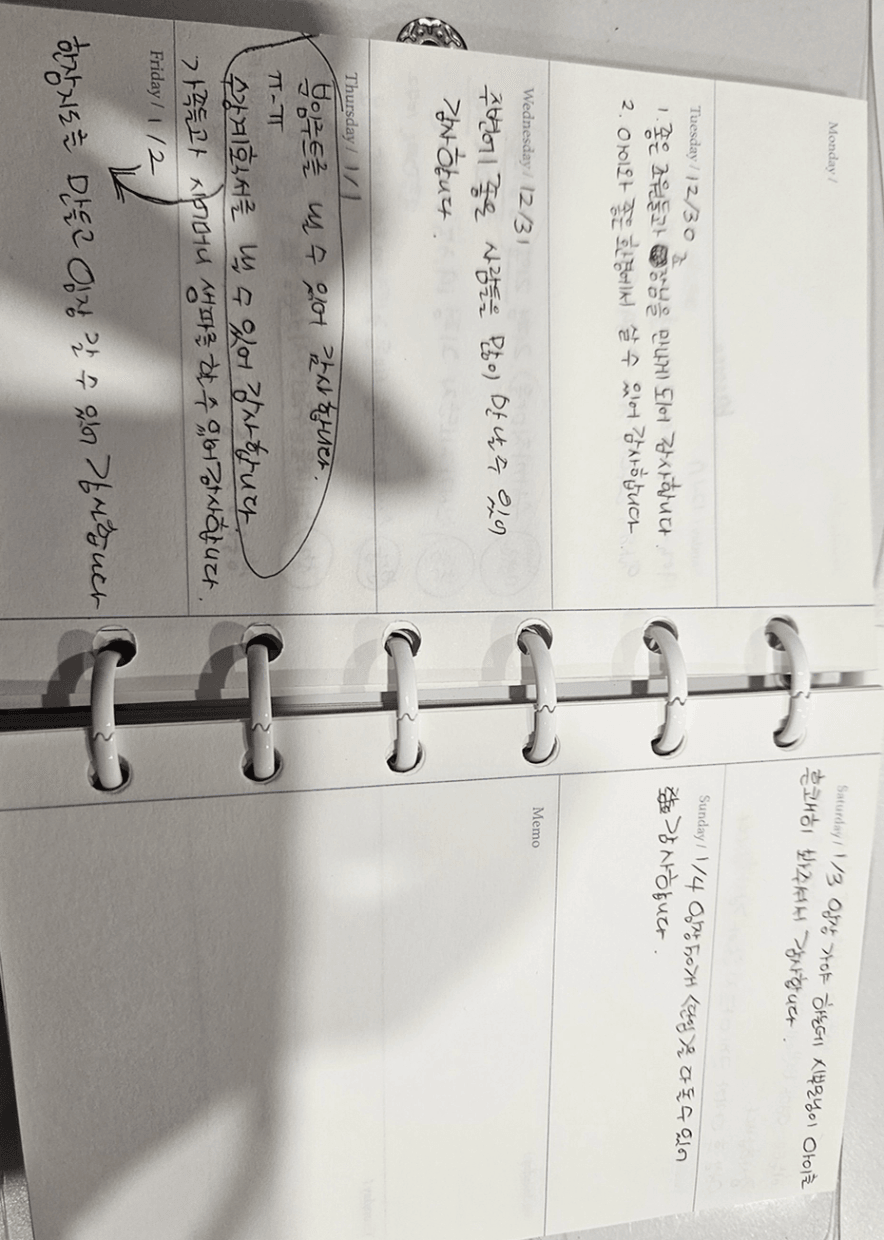 Monday /
Tuesday / 12/30
1. 좋은 조원들과 조장님을 만나게 되어 감사합니다.
2. 아이와 좋은 환경에서 살 수 있어 감사합니다
Wednesday / 12/31
주변에 좋은 사람들을 많이 만날수 있어
감사합니다.
Thursday / 1/1
분임루트를 낼 수 있어 감사합니다.
ㅠ-ㅠ
수강계획서를 낼 수 있어 감사합니다.
가족들과 시어머니 생파를 할수 있어 감사합니다.
Friday / 1/2
현장지도를 만들고 임장 갈 수 있어 감사합니다
Saturday / 1/3 임장 가야 하는데 시부모님이 아이를
흔쾌히 봐주셔서 감사합니다.
Sunday / 1/4 임장 50개 단지를 다 돌 수 있어
감사합니다.
Memo